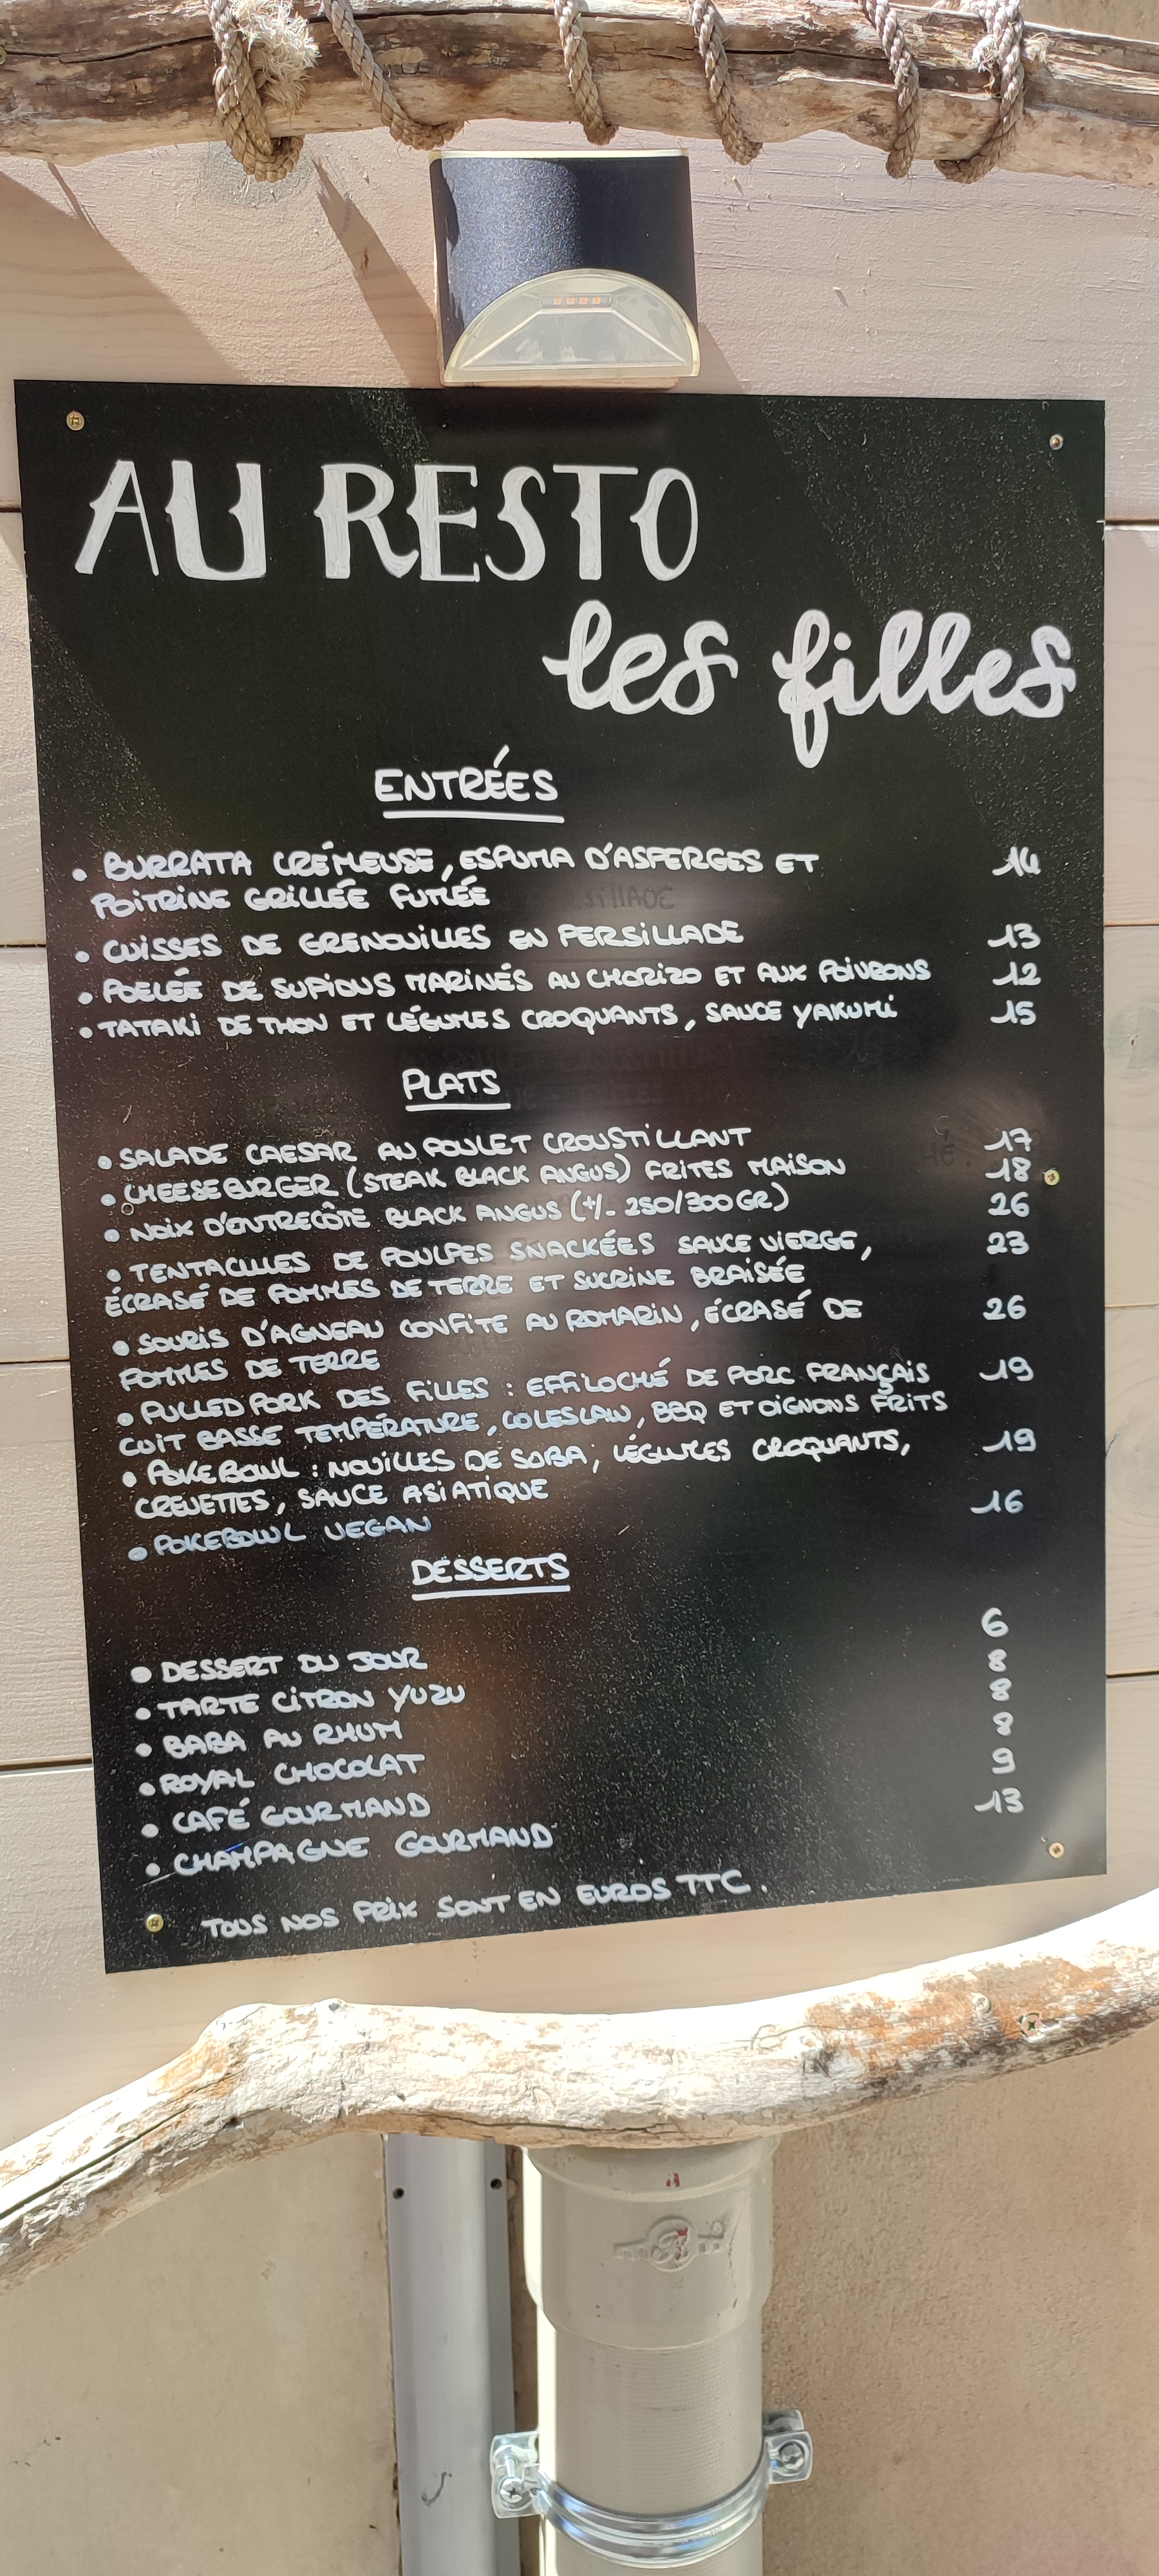 AU RESTO
les filles
ENTRÉES
• BURRATA CRÉMEUSE, ESPUMA D'ASPERGES ET 14
POITRINE GRILLÉE FUMÉE
• CUISSES DE GRENOUILLES EN PERSILLADE 13
• POELÉE DE SUPIONS MARINÉS AU CHORIZO ET AUX POIVRONS 12
• TATAKI DE THON ET LÉGUMES CROQUANTS, SAUCE YAKUMI 15
PLATS
• SALADE CAESAR AU POULET CROUSTILLANT 17
• CHEESEBURGER (STEAK BLACK ANGUS) FRITES MAISON 18
• NOIX D'ENTRECÔTE BLACK ANGUS (+/- 250/300GR) 26
• TENTACULES DE POULPES SNACKÉES SAUCE VIERGE, 23
ÉCRASÉ DE POMMES DE TERRE ET SUCRINE BRAISÉE
• SOURIS D'AGNEAU CONFITE AU ROMARIN, ÉCRASÉ DE 26
POMMES DE TERRE
• PULLED PORK DES FILLES : EFFILOCHÉ DE PORC FRANÇAIS 19
CUIT BASSE TEMPÉRATURE, COLESLAW, BBQ ET OIGNONS FRITS
• POKEBOWL : NOUILLES DE SOBA, LÉGUMES CROQUANTS, 19
CREVETTES, SAUCE ASIATIQUE
• POKEBOWL VEGAN 16
DESSERTS
• DESSERT DU JOUR 6
• TARTE CITRON YUZU 8
• BABA AU RHUM 8
• ROYAL CHOCOLAT 8
• CAFÉ GOURMAND 9
• CHAMPAGNE GOURMAND 13
TOUS NOS PRIX SONT EN EUROS TTC.